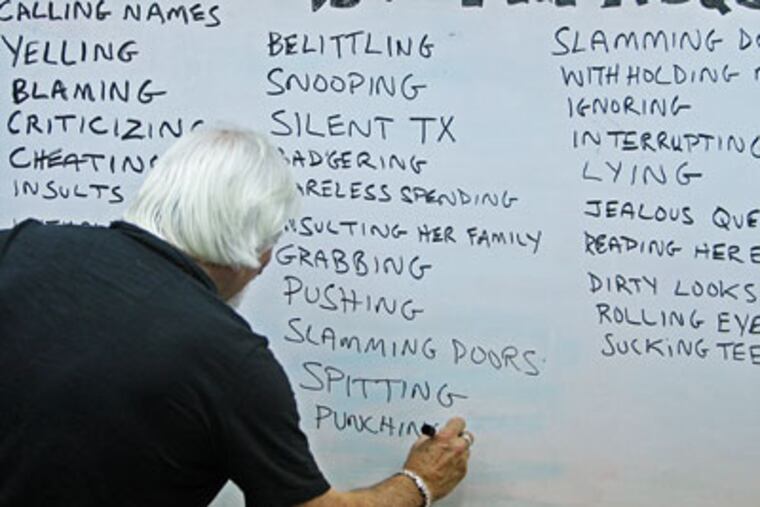 CALLING NAMES
YELLING
BLAMING
CRITICIZING
CHEATING
INSULTS
BELITTLING
SNOOPING
SILENT TX
BADGERING
CARELESS SPENDING
INSULTING HER FAMILY
GRABBING
PUSHING
SLAMMING DOORS
SPITTING
PUNCHIN
SLAMMING DO
WITHHOLDING
IGNORING
INTERRUPTING
LYING
JEALOUS QUE
READING HER E
DIRTY LOOKS
ROLLING EYE
SUCKING TEE